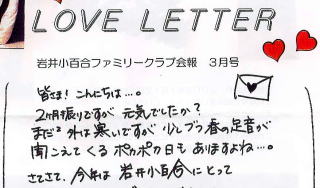 LOVE LETTER
岩井小百合ファミリークラブ会報 3月号
皆さま! こんにちは…。
2ヶ月振りですが 元気でしたか?
まだまだ外は寒いですが 少しづつ春の足音が
聞こえてくるポカポカ日もありますよね…。
さてさて、今年は 岩井小百合にとって